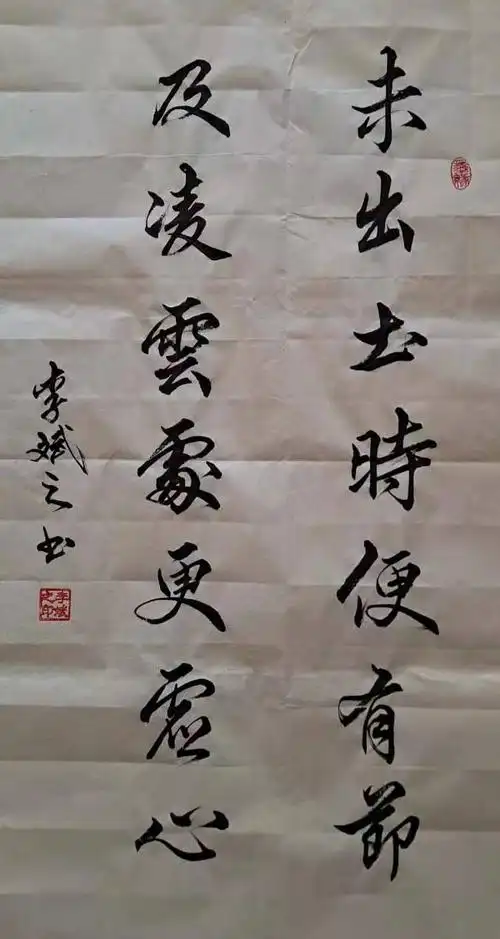 未出土時便有節
及凌雲處更虛心
李斌之书
李斌之印